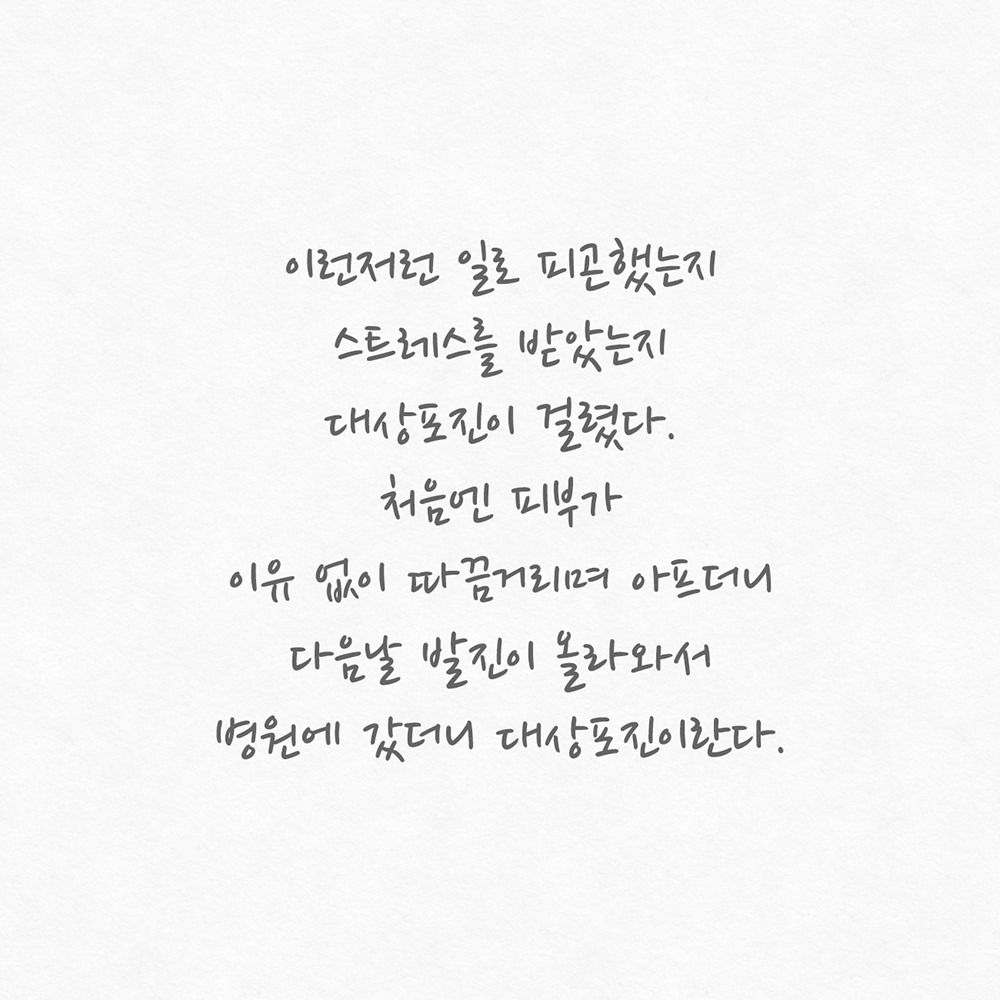 이런저런 일로 피곤했는지
스트레스를 받았는지
대상포진이 걸렸다.
처음엔 피부가
이유 없이 따끔거리며 아프더니
다음날 발진이 올라와서
병원에 갔더니 대상포진이란다.